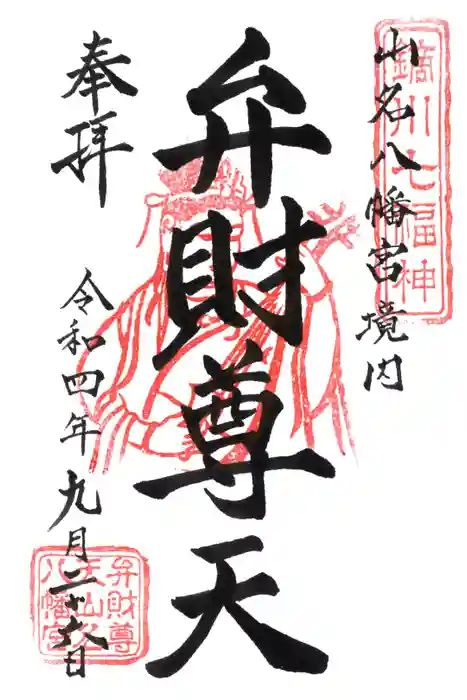 鏑川七福神
山名八幡宮境内
弁財尊天
奉拝
令和四年九月二十六日
弁財尊
天山名
八幡宮